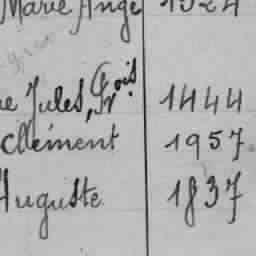 Marie Ange 1524
Jules, Fçois 1444
Clément 1957
Auguste 1837